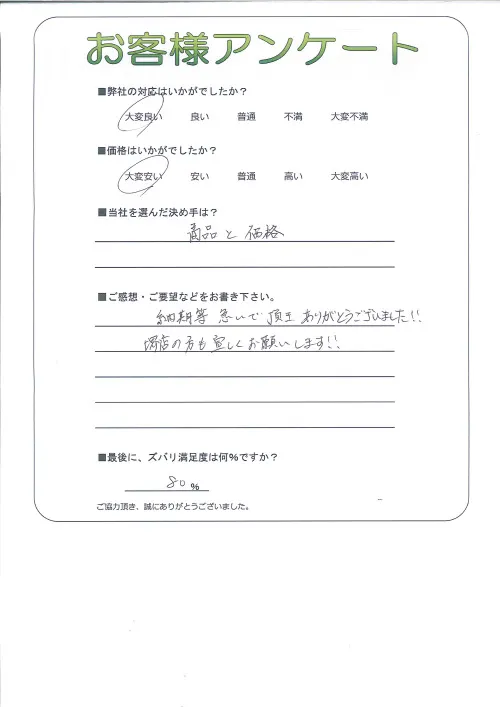 お客様アンケート
■弊社の対応はいかがでしたか？
大変良い 良い 普通 不満 大変不満
■価格はいかがでしたか？
大変安い 安い 普通 高い 大変高い
■当社を選んだ決め手は？
商品と価格
■ご感想・ご要望などをお書き下さい。
納期等 急いで頂き ありがとうございました!!
堺店の方も宜しくお願いします!!
■最後に、ズバリ満足度は何％ですか？
80％
ご協力頂き、誠にありがとうございました。